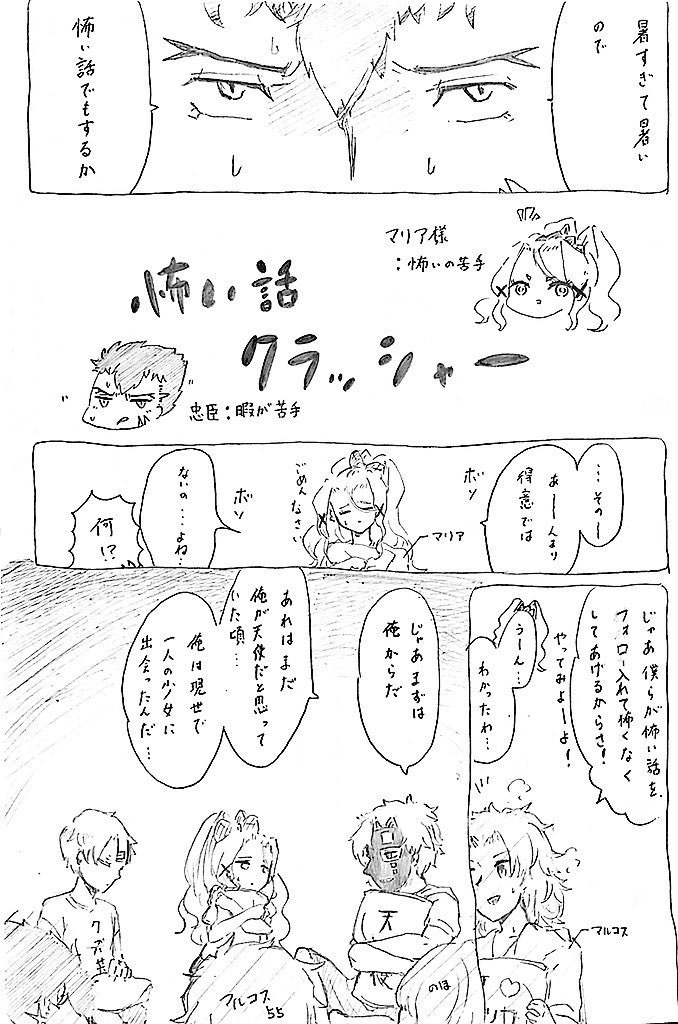 暑すぎて暑い
ので
怖い話でもするか
マリア様
：怖いの苦手
怖い話
クラッシャー
忠臣：暇が苦手
…その…
あーんまり
得意では
ボソ
ごめんなさい
マリア
ボソ
ないの…よね…
何!?
じゃあ僕らが怖い話を、
フォロー入れて怖くなく
してあげるからさ！
やってみよーよ！
うーん…
わかったわ…
マルコス
じゃあまずは
俺からだ
あれはまだ
俺が天使だと思って
いた頃…
俺は現世で
一人の少女に
出会ったんだ…
天
のほ
マルコス
55